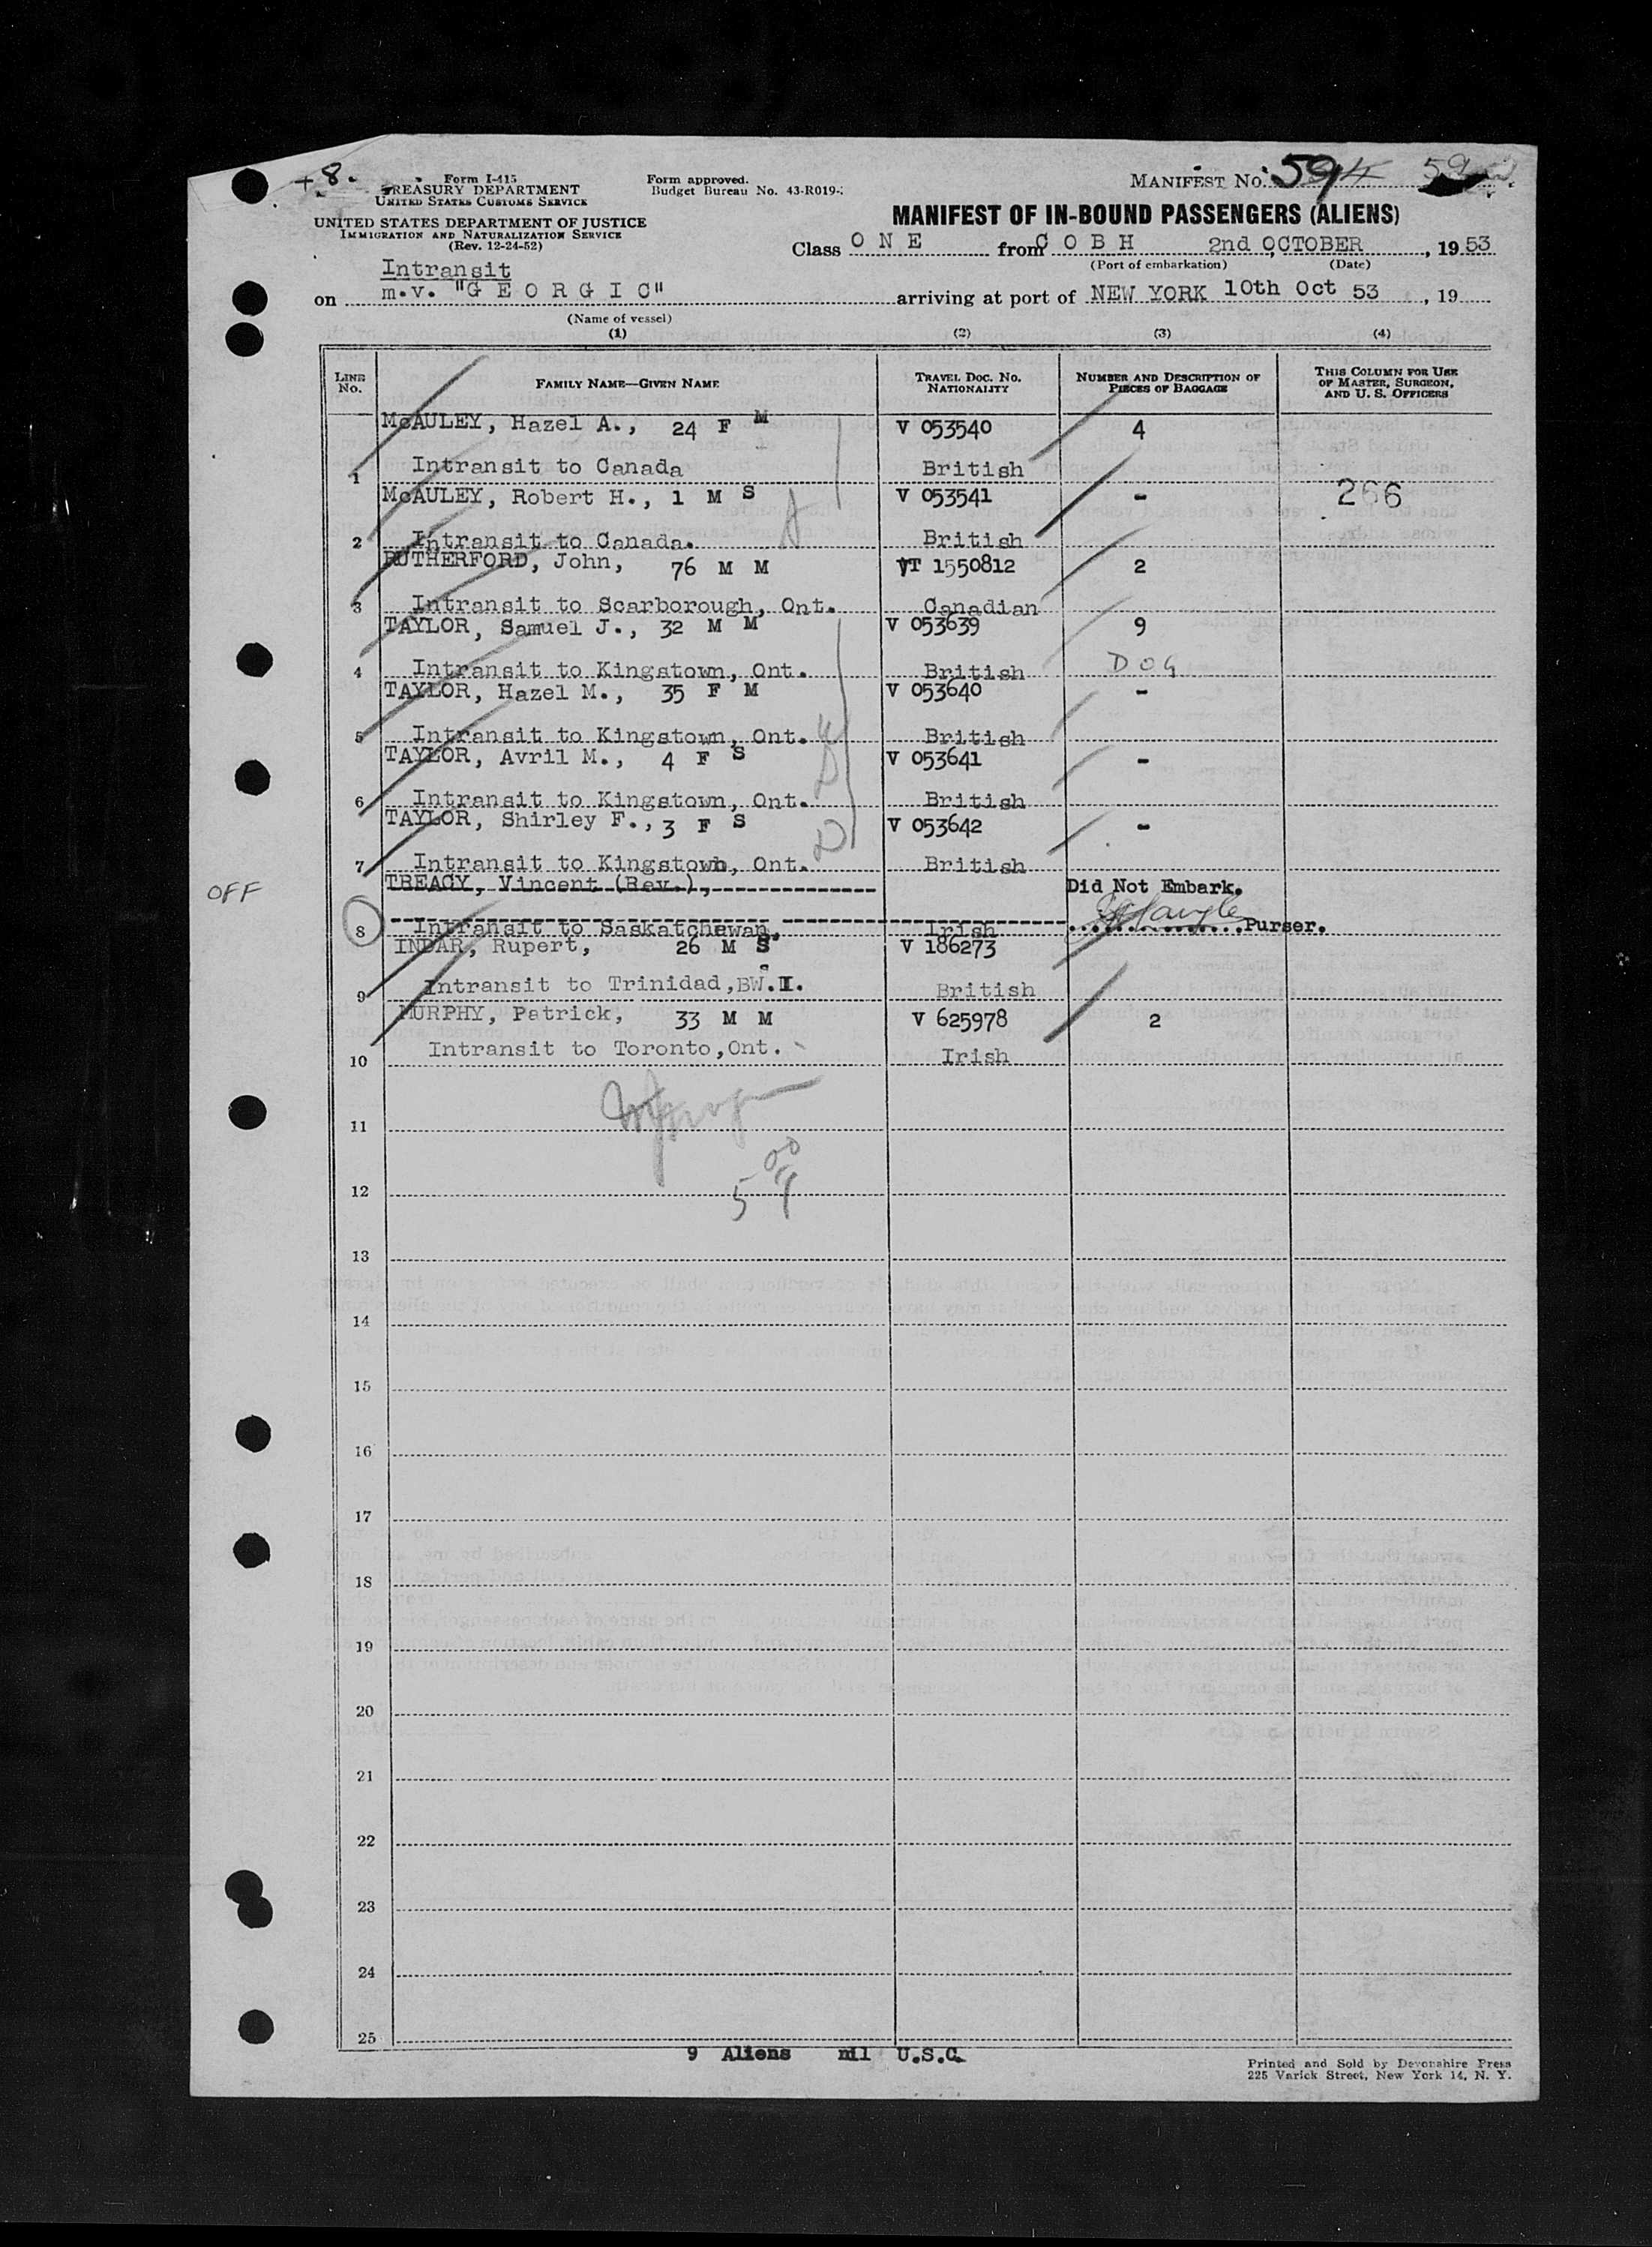 +8.
Form I-415
TREASURY DEPARTMENT
UNITED STATES CUSTOMS SERVICE
UNITED STATES DEPARTMENT OF JUSTICE
IMMIGRATION AND NATURALIZATION SERVICE
(Rev. 12-24-52)
Form approved.
Budget Bureau No. 43-R019-
MANIFEST No. 59
MANIFEST OF IN-BOUND PASSENGERS (ALIENS)
Class O N E from C O B H 2nd OCTOBER, 1953
(Port of embarkation) (Date)
Intransit
on m.v. "G E O R G I C" arriving at port of NEW YORK 10th Oct 53, 19
(Name of vessel)
(1) (2) (3) (4)
LINE No. FAMILY NAME—GIVEN NAME TRAVEL DOC. NO. NATIONALITY NUMBER AND DESCRIPTION OF PIECES OF BAGGAGE THIS COLUMN FOR USE OF MASTER, SURGEON, AND U. S. OFFICERS
McAULEY, Hazel A., 24 F M V 053540 4
1 Intransit to Canada British
McAULEY, Robert H., 1 M S V 053541 - 266
2 Intransit to Canada. British
RUTHERFORD, John, 76 M M VT 1550812 2
3 Intransit to Scarborough, Ont. Canadian
TAYLOR, Samuel J., 32 M M V 053639 9
4 Intransit to Kingstown, Ont. British DOG
TAYLOR, Hazel M., 35 F M V 053640 -
5 Intransit to Kingstown, Ont. British
TAYLOR, Avril M., 4 F S V 053641 -
6 Intransit to Kingstown, Ont. British
TAYLOR, Shirley F., 3 F S V 053642 -
7 Intransit to Kingstown, Ont. British
OFF TREACY, Vincent (Rev.), Did Not Embark.
8 Intransit to Saskatchewan, Irish Purser.
INDAR, Rupert, 26 M S V 186273
9 Intransit to Trinidad, BW.I. British
MURPHY, Patrick, 33 M M V 625978 2
10 Intransit to Toronto, Ont. Irish
11
12
13
14
15
16
17
18
19
20
21
22
23
24
25
9 Aliens nil U.S.C.
Printed and Sold by Devonshire Press
225 Varick Street, New York 14, N. Y.